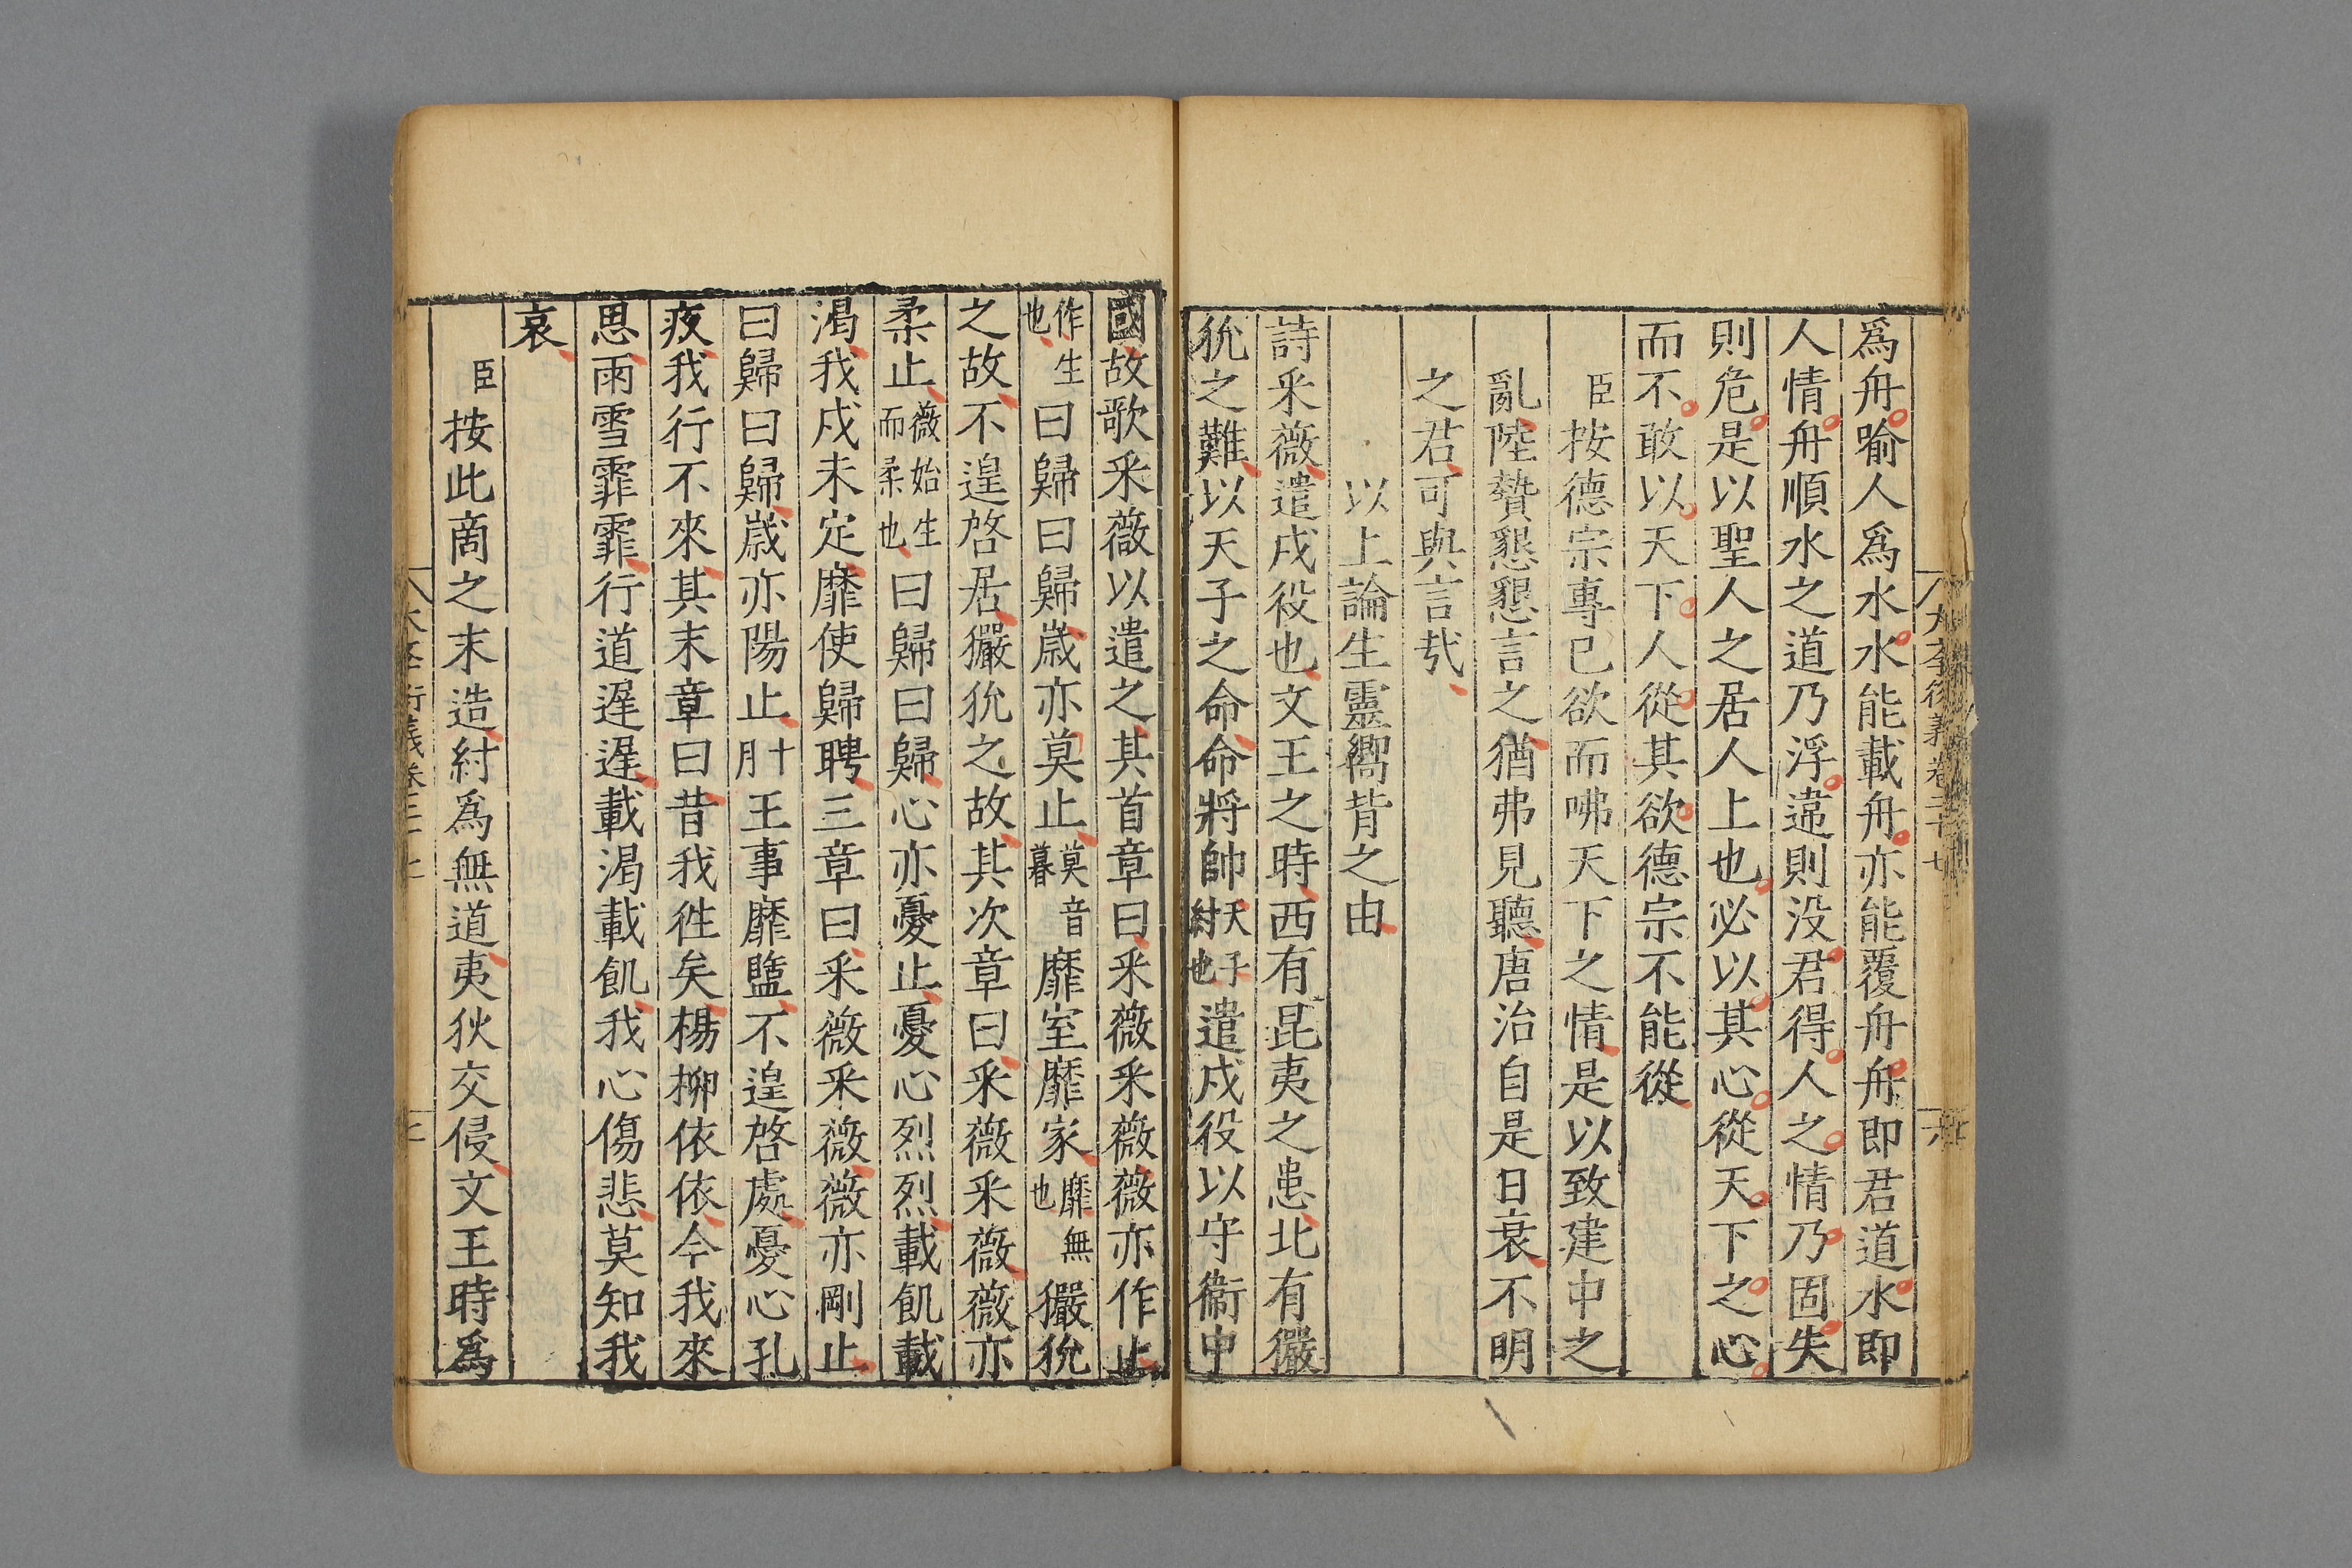 大學衍義卷二十七
爲舟喻人爲水水能載舟亦能覆舟舟即君道水即
人情舟順水之道乃浮違則没君得人之情乃固失
則危是以聖人之居人上也必以其心從天下之心
而不敢以天下人從其欲德宗不能從
臣按德宗專已欲而咈天下之情是以致建中之
亂陸贄懇懇言之猶弗見聽唐治自是日衰不明
之君可與言㢤
以上論生靈嚮背之由
詩采薇遣戍役也文王之時西有昆夷之患北有玁
狁之難以天子之命命將帥天子紂也遣戍役以守衞中
國故歌采薇以遣之其首章曰采薇采薇薇亦作止
作生也曰歸曰歸歲亦莫止莫音暮靡室靡家靡無也玁狁
之故不遑啓居玁狁之故其次章曰采薇采薇薇亦
柔止薇始生而柔也曰歸曰歸心亦憂止憂心烈烈載飢載
渴我戍未定靡使歸聘三章曰采薇采薇薇亦剛止
曰歸曰歸歲亦陽止十月王事靡盬不遑啓處憂心孔
疚我行不來其末章曰昔我徃矣楊柳依依今我來
思雨雪霏霏行道遲遲載渴載飢我心傷悲莫知我
哀
臣按此啇之末造紂爲無道夷狄交侵文王時爲